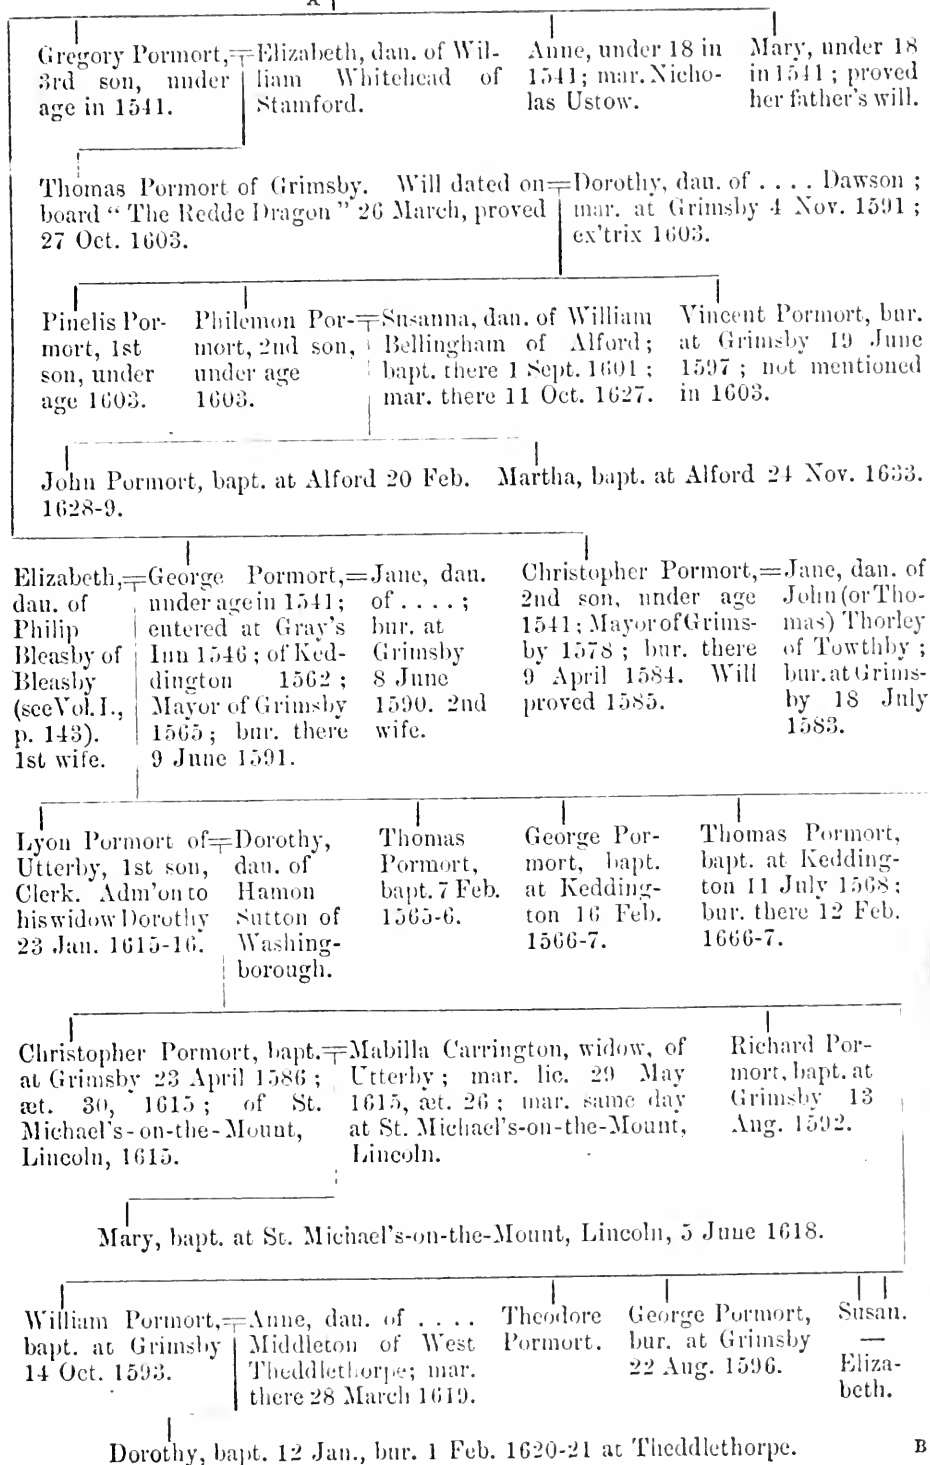 A
Gregory Pormort,
3rd son, under
age in 1541.
Elizabeth, dan. of Wil-
liam Whitehead of
Stamford.
Anne, under 18 in
1541; mar. Nicho-
las Ustow.
Mary, under 18
in 1541; proved
her father's will.
Thomas Pormort of Grimsby. Will dated on
board "The Redde Dragon" 26 March, proved
27 Oct. 1603.
Dorothy, dan. of .... Dawson;
mar. at Grimsby 4 Nov. 1591;
ex'trix 1603.
Pinelis Por-
mort, 1st
son, under
age 1603.
Philemon Por-
mort, 2nd son,
under age
1603.
Susanna, dan. of William
Bellingham of Alford;
bapt. there 1 Sept. 1601;
mar. there 11 Oct. 1627.
Vincent Pormort, bur.
at Grimsby 19 June
1597; not mentioned
in 1603.
John Pormort, bapt. at Alford 20 Feb.
1628-9.
Martha, bapt. at Alford 24 Nov. 1633.
Elizabeth,
dan. of
Philip
Bleasby of
Bleasby
(see Vol. I.,
p. 143).
1st wife.
George Pormort,
under age in 1541;
entered at Gray's
Inn 1546; of Ked-
dington 1562;
Mayor of Grimsby
1565; bur. there
9 June 1591.
Jane, dan.
of ....;
bur. at
Grimsby
8 June
1590. 2nd
wife.
Christopher Pormort,
2nd son, under age
1541; Mayor of Grims-
by 1578; bur. there
9 April 1584. Will
proved 1585.
Jane, dan. of
John (or Tho-
mas) Thorley
of Towthby;
bur. at Grims-
by 18 July
1583.
Lyon Pormort of
Utterby, 1st son,
Clerk. Adm'on to
his widow Dorothy
23 Jan. 1615-16.
Dorothy,
dan. of
Hamon
Sutton of
Washing-
borough.
Thomas
Pormort,
bapt. 7 Feb.
1565-6.
George Por-
mort, bapt.
at Kedding-
ton 16 Feb.
1566-7.
Thomas Pormort,
bapt. at Kedding-
ton 11 July 1568;
bur. there 12 Feb.
1666-7.
Christopher Pormort, bapt.
at Grimsby 23 April 1586;
æt. 30, 1615; of St.
Michael's-on-the-Mount,
Lincoln, 1615.
Mabilla Carrington, widow, of
Utterby; mar. lic. 29 May
1615, æt. 26; mar. same day
at St. Michael's-on-the-Mount,
Lincoln.
Richard Por-
mort, bapt. at
Grimsby 13
Aug. 1592.
Mary, bapt. at St. Michael's-on-the-Mount, Lincoln, 5 June 1618.
William Pormort,
bapt. at Grimsby
14 Oct. 1593.
Anne, dan. of ....
Middleton of West
Theddlethorpe; mar.
there 28 March 1619.
Theodore
Pormort.
George Pormort,
bur. at Grimsby
22 Aug. 1596.
Susan.
—
Eliza-
beth.
Dorothy, bapt. 12 Jan., bur. 1 Feb. 1620-21 at Theddlethorpe.
B